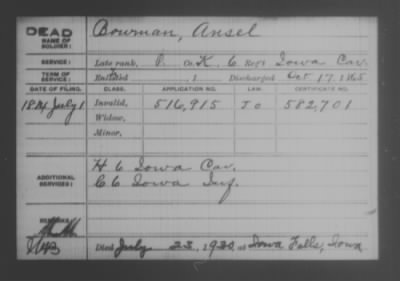 DEAD
NAME OF SOLDIER: Bowman, Ansel
SERVICE: Late rank, P. Co. K, 6 Regt. Iowa Cav.
TERM OF SERVICE: Enlisted , 1 Discharged Oct. 17, 1865
DATE OF FILING. CLASS. APPLICATION NO. LAW. CERTIFICATE NO.
1884 July 1 Invalid, 516,915 Jo 582,701
Widow,
Minor,
ADDITIONAL SERVICES: H 6 Iowa Cav.
C 6 Iowa Inf.
REMARKS:
Died July 23, 1920, at Iowa Falls, Iowa